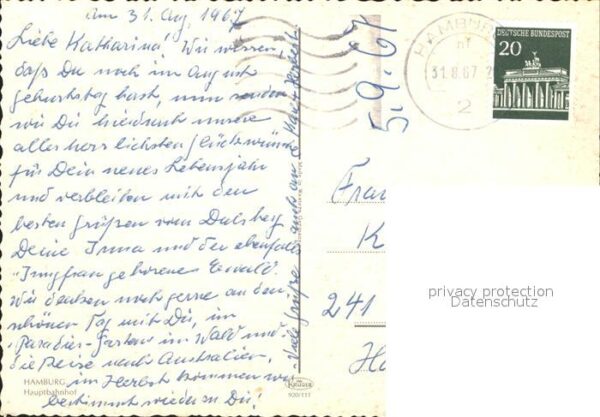 am 31. Aug. 1967
Liebe Katharina! Wir wissen
daß Du noch im August
Geburtstag hast, nun senden
wir Dir hierdurch unsere
allerherzlichsten Glückwünsche
für Dein neues Lebensjahr
und verbleiben mit den
besten Grüßen vom Dulsberg
Deine Irma und der ebenfalls
"Jungfrau geborenes Ewald.
Wir denken noch gerne an den
schönen Tag mit Dir, im
"Paradies-Garten im Wald und
die Reise nach Australien,
im Herbst kommen wir
bestimmt wieder zu Dir!
Viele Grüße auch an
HAMBURG
Hauptbahnhof
KRÜGER
900/111
5.9.67
HAMBURG
31.8.67
2
DEUTSCHE BUNDESPOST
20
Fra
K
241
H
privacy protection
Datenschutz